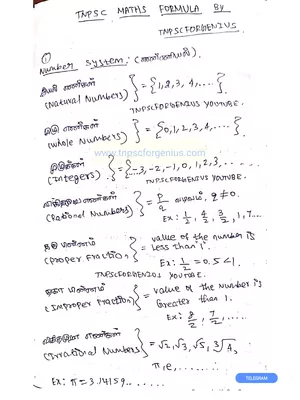 TNPSC MATHS FORMULA BY
TNPSCFORGENIUS.
①
Number System: (எண்ணியல்).
இயல் எண்கள்
(Natural Numbers) } = {1,2,3,4,....}
TNPSCFORGENIUS YOUTUBE.
முழு எண்கள்
(whole Numbers) } = {0,1,2,3,4,....}.
www.tnpscforgenius.com
முழுக்கள்
(Integers) } = {...-3,-2,-1,0,1,2,3,.....
TNPSCFORGENIUS YOUTUBE.
விகிதமுறு எண்கள்
(Rational Numbers) } = p/q வடிவம், q≠0.
Ex: 1/2, 4/2, 3/2, 1, 7...
தகு பின்னம்
(proper Fraction) } = value of the number is
Less than '1'.
Ex: 1/2 = 0.5 < 1.
TNPSCFORGENIUS YOUTUBE.
தகா பின்னம்
(Improper Fraction) } = value of the Number is
Greater than 1.
Ex: 8/2, 7/2, .....
விகிதமுறா எண்கள்
(Irrational Numbers) } = √2, √3, √5, ∛4,
π, e, .......
Ex: π = 3.14159.......
TELEGRAM